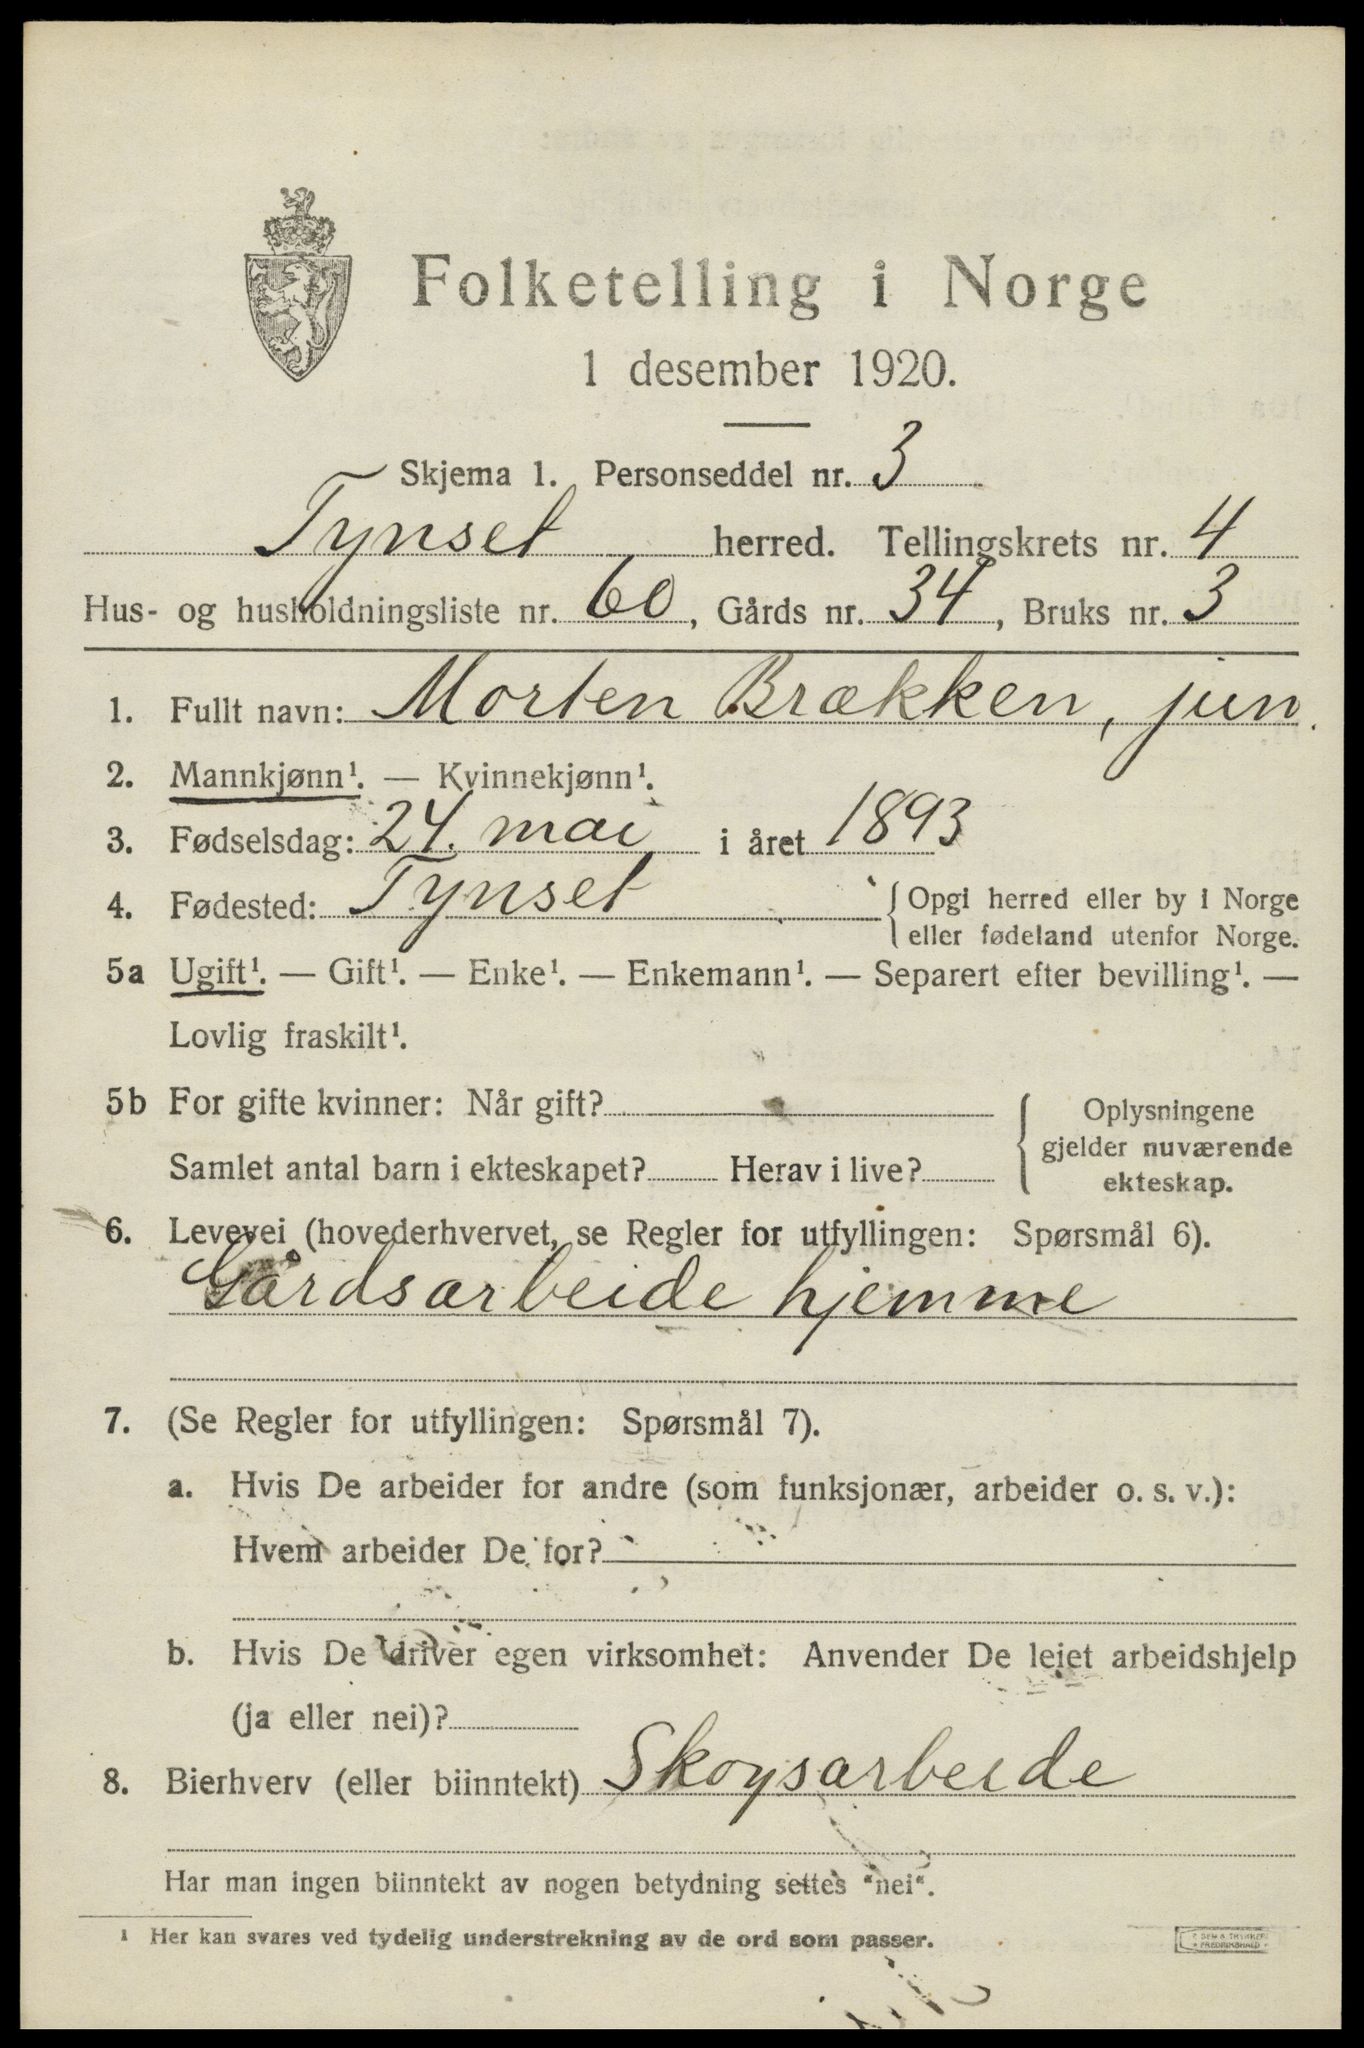 Folketelling i Norge
1 desember 1920.
Skjema 1. Personseddel nr. 3
Tynset herred. Tellingskrets nr. 4
Hus- og husholdningsliste nr. 60, Gårds nr. 34, Bruks nr. 3
1. Fullt navn: Morten Brækken, jun.
2. Mannkjønn¹. — Kvinnekjønn¹.
3. Fødselsdag: 24. mai i året 1893
4. Fødested: Tynset { Opgi herred eller by i Norge
eller fødeland utenfor Norge.
5a Ugift¹. — Gift¹. — Enke¹. — Enkemann¹. — Separert efter bevilling¹. —
Lovlig fraskilt¹.
5b For gifte kvinner: Når gift?
Samlet antal barn i ekteskapet? Herav i live?
{ Oplysningene
gjelder nuværende
ekteskap.
6. Levevei (hovederhvervet, se Regler for utfyllingen: Spørsmål 6).
Gårdsarbeide hjemme
7. (Se Regler for utfyllingen: Spørsmål 7).
a. Hvis De arbeider for andre (som funksjonær, arbeider o. s. v.):
Hvem arbeider De for?
b. Hvis De driver egen virksomhet: Anvender De leiet arbeidshjelp
(ja eller nei)?
8. Bierhverv (eller biinntekt) Skogsarbeide
Har man ingen biinntekt av nogen betydning settes "nei".
¹ Her kan svares ved tydelig understrekning av de ord som passer.